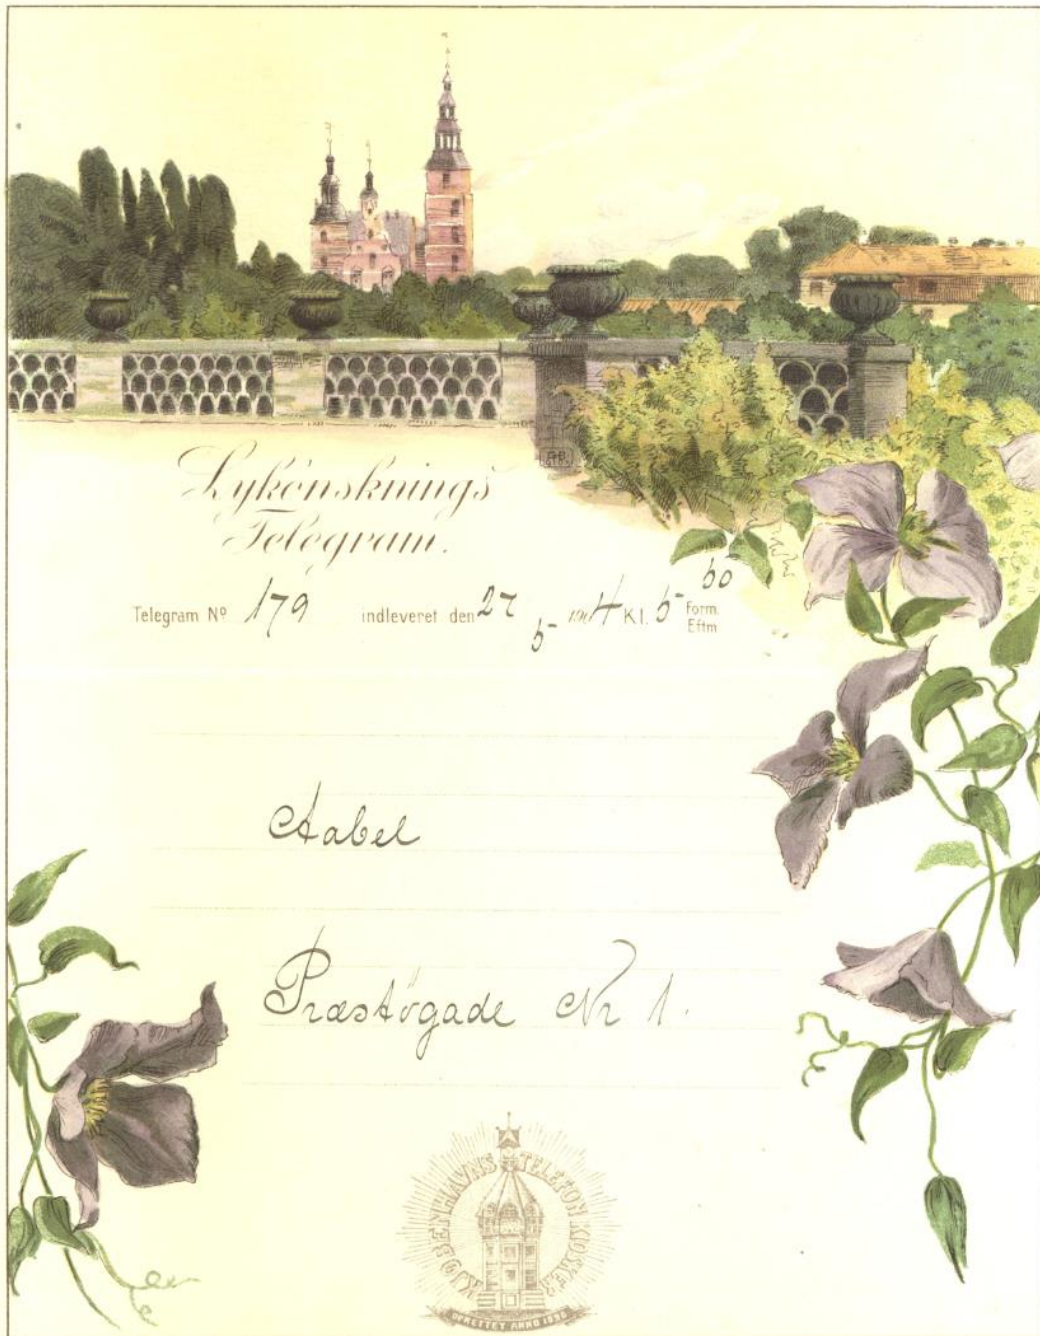 Lykønsknings
Telegram.
Telegram Nº 179 indleveret den 27/5 1904 Kl. 5 50 Form. Eftm.
Aabel
Præstøgade Nr 1.
KJØBENHAVNS TELEFON KIOSKER
OPRETTET ANNO 1896